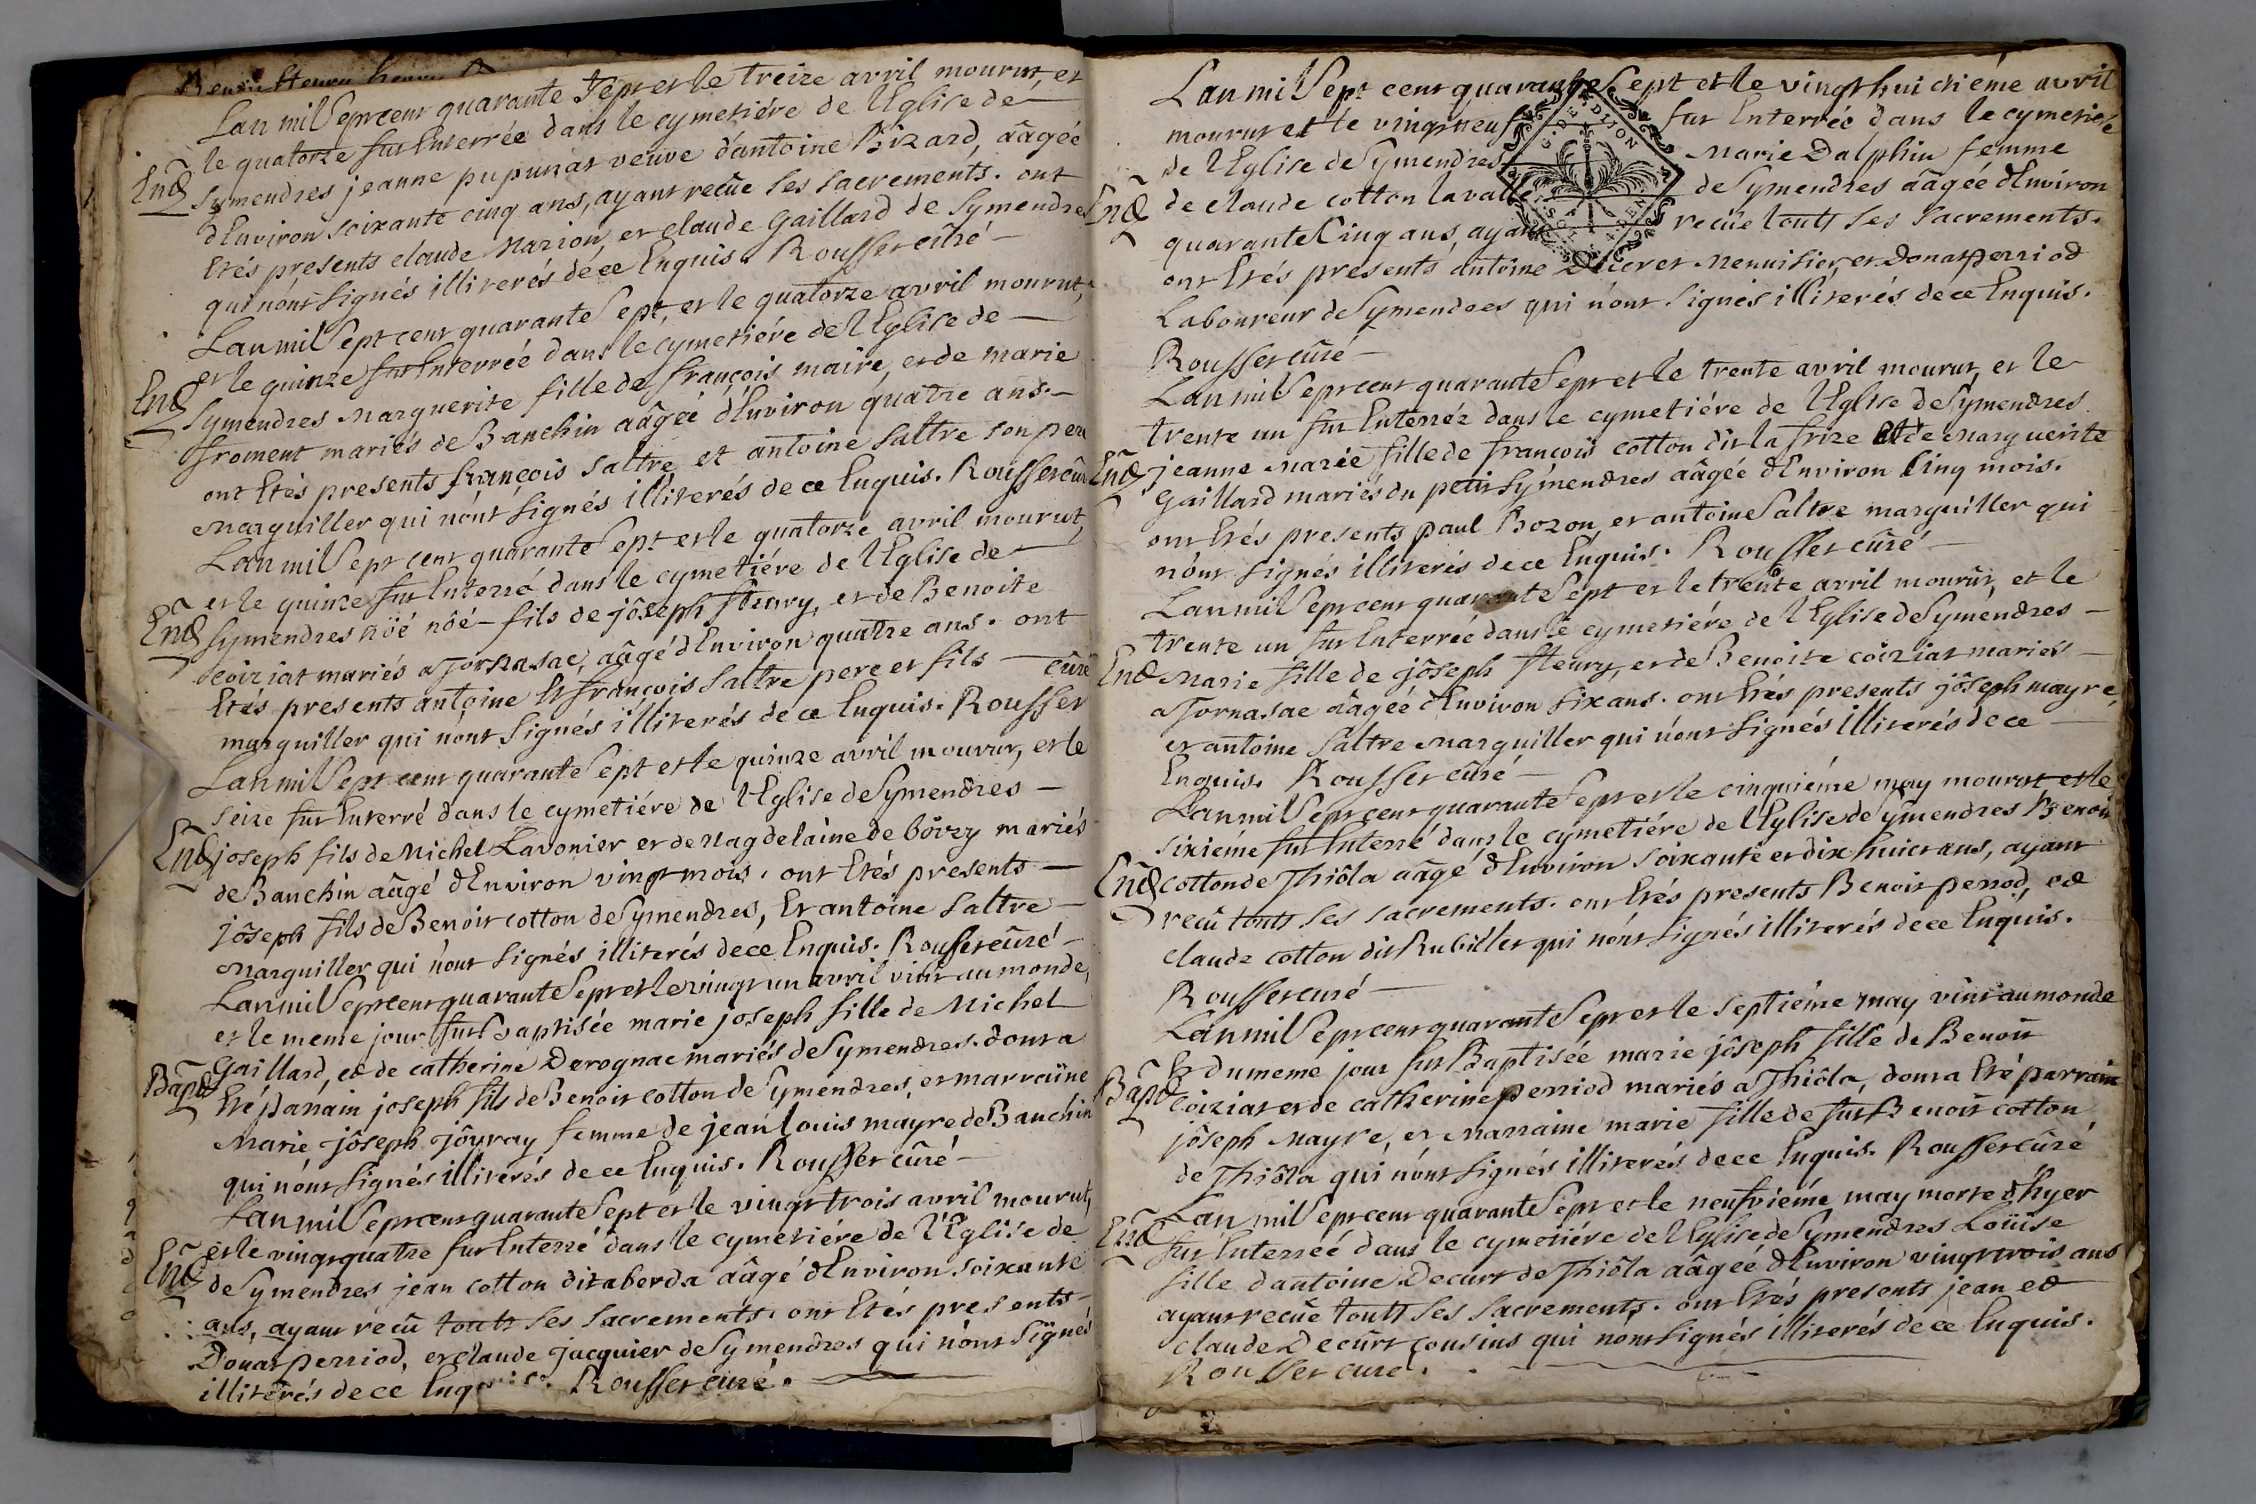 Lan mil Sept cent quarante Sept et le treize avril mourut, et
le quatorze fut Enterrée dans le cymetiére de l'Eglise de
Symendres jeanne pupunat veuve d'antoine Bizard, aâgéé
d'Environ soixante cinq ans, ayant recûe ses sacrements. ont
Etés presents claude Marion, et claude Gaillard de Symendres
qui n'ont signés illiterés de ce Enquis. Rousset cûré
Lan mil Sept cent quarante Sept, et le quatorze avril mourut,
et le quinze fut Enterrée dans le cymetiére de l'Eglise de
Symendres Marguerite fille de françois maire, et de marie
froment mariés de Banchin aâgéé d'Environ quatre ans.
ont Etés presents françois saltre et antoine saltre son pere
Marguiller qui n'ont signés illiterés de ce Enquis. Rousset cûré
Lan mil Sept cent quarante Sept et le quatorze avril mourut,
et le quinze fut Enterré dans le cymetiére de l'Eglise de
Symendres nôé fils de jôseph fleury, et de Benoite
coiziat mariés a Tornasac, aâgé d'Environ quatre ans. ont
Etés presents antoine Et françois saltre pere et fils
marguiller qui n'ont signés illiterés de ce Enquis. Rousset cûré
Lan mil Sept cent quarante Sept et le quinze avril mourut, et le
seize fut Enterré dans le cymetiére de l'Eglise de Symendres
joseph fils de Michel Lavonier et de Magdelaine de bôrzy mariés
de Banchin aâgé d'Environ vingt mois. ont Etés presents
jôseph fils de Benoit cotton de Symendres, Et antoine saltre
Marguiller qui n'ont signés illiterés de ce Enquis. Rousset cûré
Lan mil Sept cent quarante Sept et le vingt un avril vint au monde,
et le meme jour fut Baptisée marie joseph fille de Michel
Gaillard, et de catherine Derognac mariés de Symendres. dont a
Eté parrain joseph fils de Benoit cotton de Symendres, et marraine
Marie jôseph jôyray femme de jean louis mayre de Banchin
qui n'ont signés illiterés de ce Enquis. Rousset cûré
Lan mil Sept cent quarante Sept et le vingt trois avril mourut,
et le vingt quatre fut Enterré dans le cymetiére de l'Eglise de
de Symendres jean cotton dit aborda aâgé d'Environ soixante
ans, ayant recû touts ses sacrements. ont Etés presents
Donat perriod, et claude jacquier de Symendres qui n'ont signés
illiterés de ce Enquis. Rousset cûré.
Lan mil Sept cent quarante Sept et le vingt huictiéme avril
mourut et le vingt neuf fut Enterréé dans le cymetiére
de l'Eglise de Symendres Marie Dalphin femme
de claude cotton lavalle de Symendres aâgéé d'Environ
quarante Cinq ans, ayant recûe touts ses sacrements.
ont Etés presents antoine Decret Menuisier, et Donat perriod
Laboureur de Symendres qui n'ont signés illiterés de ce Enquis.
Rousset cûré
Lan mil Sept cent quarante Sept et le trente avril mourut, et le
trente un fut Enterréé dans le cymetiére de l'Eglise de Symendres
jeanne Marie fille de françois cotton dit la frize et de Marguerite
Gaillard mariés du petit Symendres aâgéé d'Environ Cinq mois.
ont Etés presents paul Bozon, et antoine saltre marguiller qui
n'ont signés illiterés de ce Enquis. Rousset cûré
Lan mil Sept cent quarante Sept et le trente avril mourût, et le
trente un fut Enterréé dans le cymetiére de l'Eglise de Symendres
Marie fille de jôseph fleury, et de Benoite coiziat mariés
a Tornasac aâgéé d'Environ six ans. ont Etés presents jôseph mayre,
et antoine saltre Marguiller qui n'ont signés illiterés de ce
Enquis. Rousset cûré
Lan mil Sept cent quarante Sept et le cinquiéme may mourut et le
sixiéme fut Enterré dans le cymetiére de l'Eglise de Symendres Benoit
cotton de Thiôla aâgé d'Environ soixante et dix huict ans, ayant
recû touts ses sacrements. ont Etés presents Benoit perriod, et
claude cotton dit Rubillet qui n'ont signés illiterés de ce Enquis.
Rousset curé
Lan mil Sept cent quarante Sept et le septiéme may vint au monde
Et du meme jour fut Baptisée marie jôseph fille de Benoit
Coiziat et de catherine perriod mariés a Thiôla, dont a Eté parrain
jôseph Mayre, et Marraine marie fille de fut Benoit cotton
de Thiôla qui n'ont signés illiterés de ce Enquis. Rousset cûré
Lan mil Sept cent quarante Sept et le neufviéme may morte d'hyer
fut Enterréé dans le cymetiére de l'Eglise de Symendres Loüise
fille d'antoine Decurt de Thiôla aâgéé d'Environ vingt trois ans
ayant recûe touts ses sacrements. ont Etés presents jean et
claude Decurt cousins qui n'ont signés illiterés de ce Enquis.
Rousset curé.